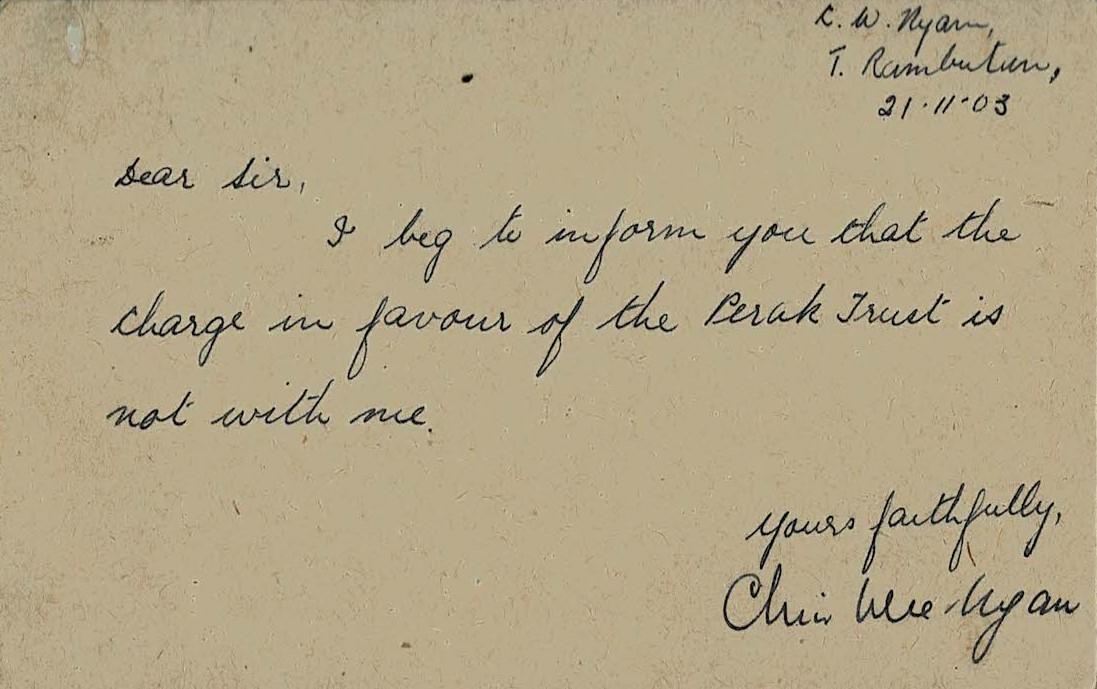 C. W. Nyan,
T. Rambutan,
21·11·03
Dear Sir,
I beg to inform you that the
charge in favour of the Perak Trust is
not with me.
Yours faithfully,
Chin Wee Nyan